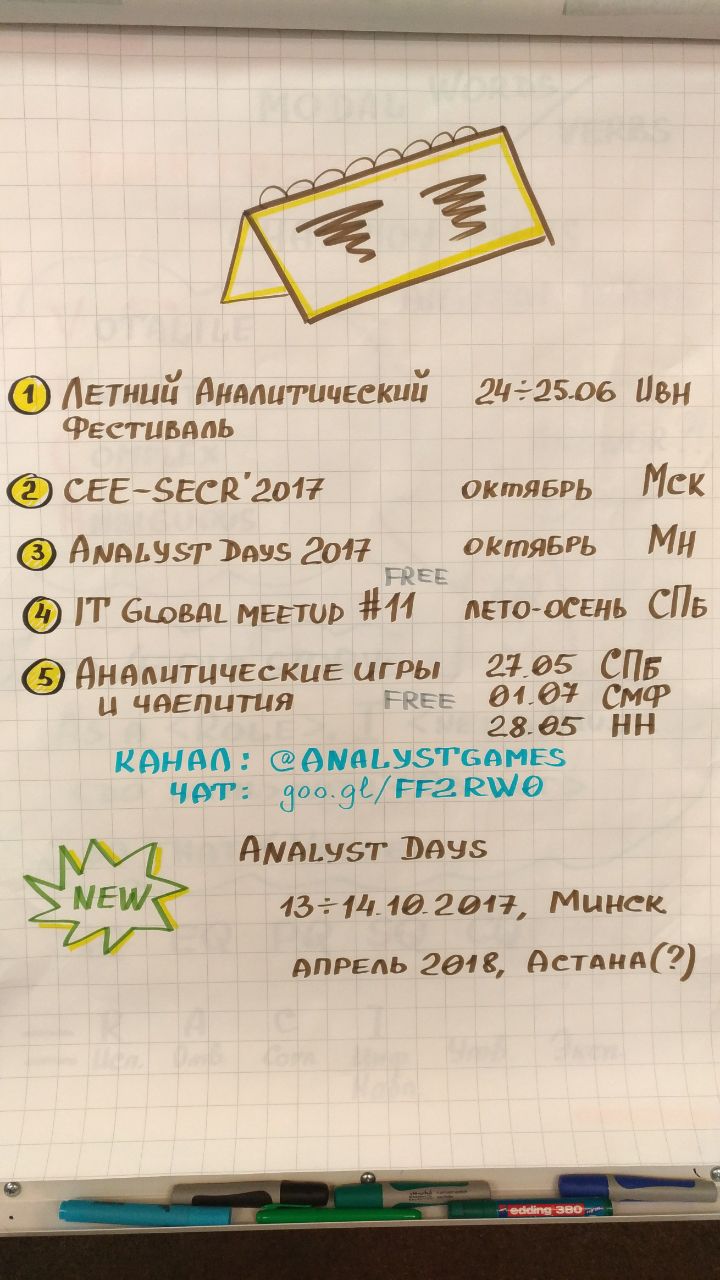 ① ЛЕТНИЙ АНАЛИТИЧЕСКИЙ 24÷25.06 ИВН
ФЕСТИВАЛЬ
② CEE-SECR'2017 ОКТЯБРЬ МСК
③ ANALYST DAYS 2017 ОКТЯБРЬ МН
FREE
④ IT GLOBAL MEETUP #11 ЛЕТО-ОСЕНЬ СПБ
⑤ АНАЛИТИЧЕСКИЕ ИГРЫ 27.05 СПБ
И ЧАЕПИТИЯ FREE 01.07 СМФ
28.05 НН
КАНАЛ: @ANALYSTGAMES
ЧАТ: goo.gl/FF2RW0
NEW
ANALYST DAYS
13÷14.10.2017, МИНСК
АПРЕЛЬ 2018, АСТАНА(?)
edding 380